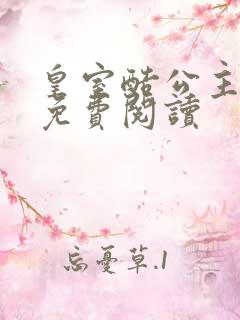 皇室酷公主
免費閱讀
忘憂草.1